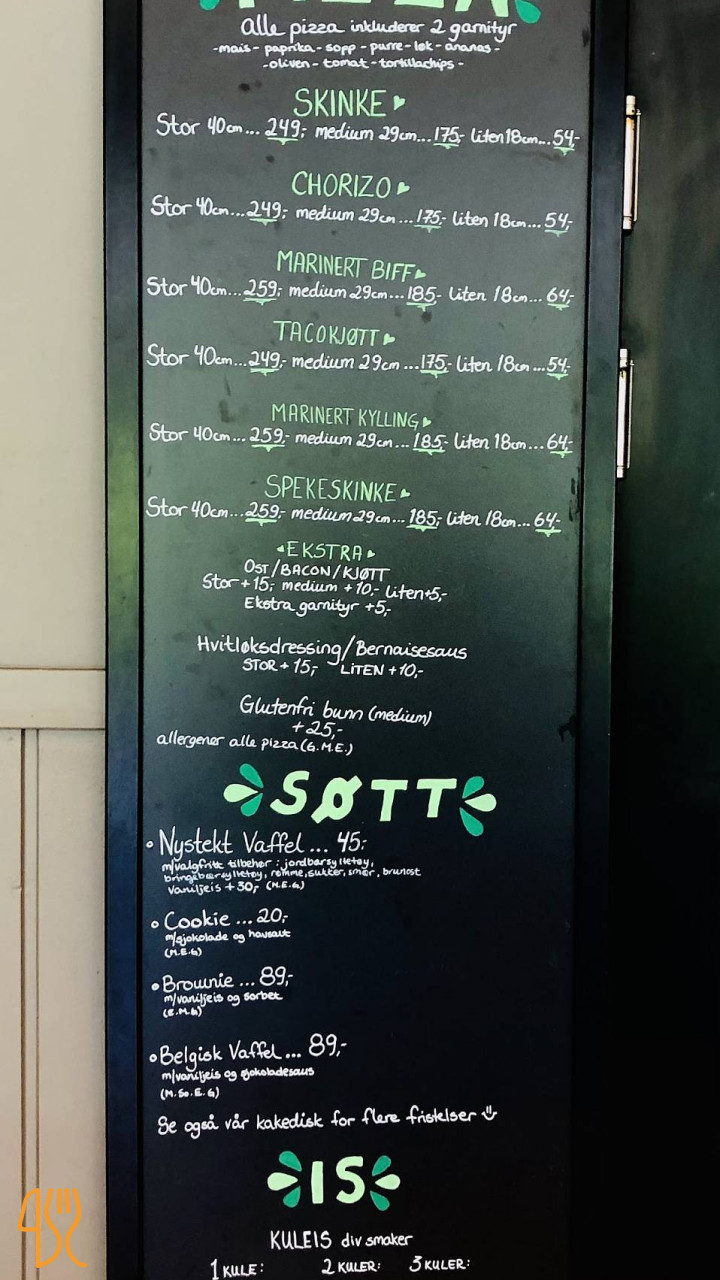 PIZZA
alle pizza inkluderer 2 garnityr
-mais- paprika - sopp - purre - løk - ananas -
-oliven - tomat - tortillachips -
SKINKE
Stor 40cm... 249,- medium 29cm...175,- liten 18cm...54,-
CHORIZO
Stor 40cm...249,- medium 29cm...175,- liten 18cm...54,-
MARINERT BIFF
Stor 40cm...259,- medium 29cm...185,- liten 18cm... 64,-
TACOKJØTT
Stor 40cm...249,- medium 29cm...175,- liten 18cm...54,-
MARINERT KYLLING
Stor 40cm...259,- medium 29cm...185,- liten 18cm...64,-
SPEKESKINKE
Stor 40cm...259,- medium 29cm...185,- liten 18cm...64,-
EKSTRA
OST/BACON/KJØTT
Stor +15,- medium +10,- liten+5,-
Ekstra garnityr +5,-
Hvitløksdressing/Bernaisesaus
STOR + 15,- LITEN +10,-
Glutenfri bunn (medium)
+25,-
allergener alle pizza (G.M.E.)
SØTT
Nystekt Vaffel ... 45,-
m/valgfritt tilbehør : jordbærsyltetøy,
bringebærsyltetøy, rømme, sukker, smør, brunost
Vaniljeis +30,- (M.E.G)
Cookie ...20,-
m/sjokolade og havsalt
(M.E.G)
Brownie ...89,-
m/vaniljeis og sorbet
(E.M.G)
Belgisk Vaffel... 89,-
m/vaniljeis og sjokoladesaus
(M.So.E.G)
Se også vår kakedisk for flere fristelser
IS
KULEIS div smaker
1 KULE: 2 KULER: 3 KULER: